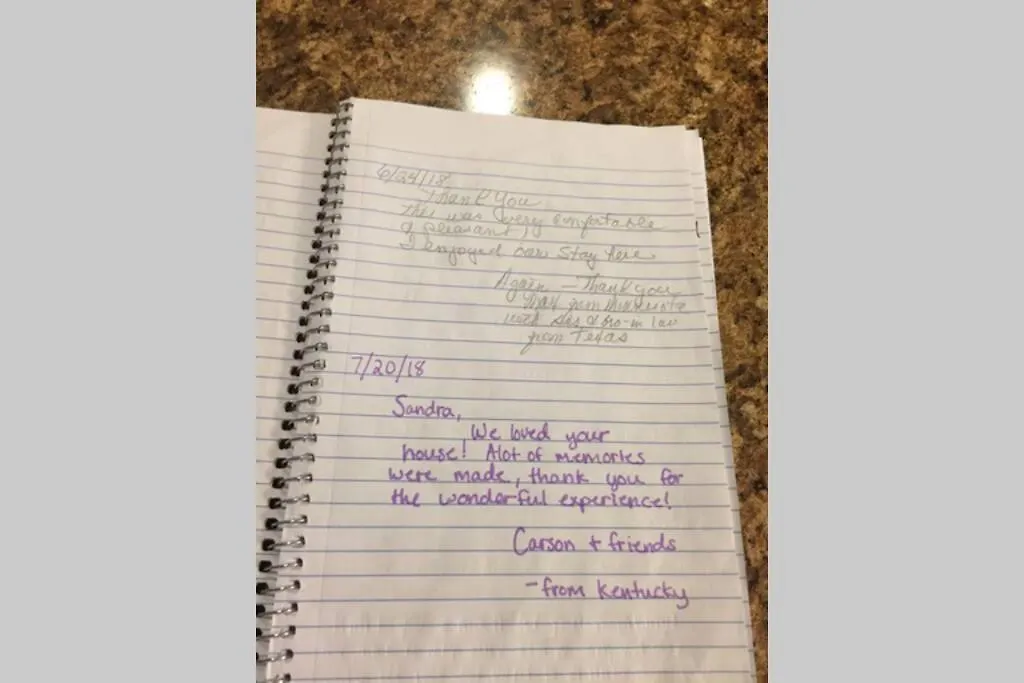 6/24/18
Thank You
This was very comfortable
& pleasant,
I enjoyed our stay here
Again — Thank you
from Minnesota
with Sis & bro-in law
from Texas
7/20/18
Sandra,
We loved your
house! Alot of memories
were made, thank you for
the wonderful experience!
Carson + friends
-from Kentucky